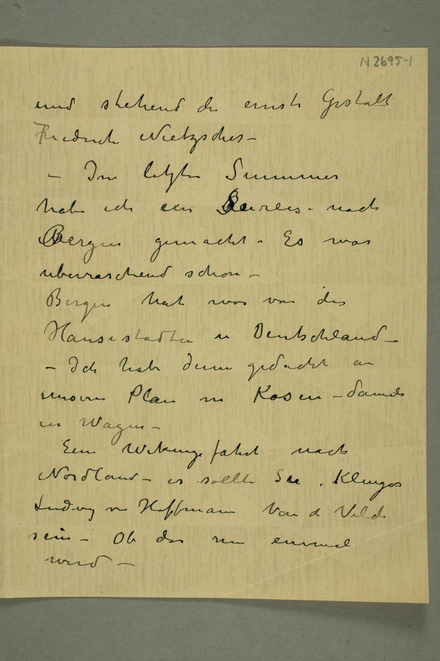 N 2695-1
und stehend die ernste Gestalt
Friedrich Nietzsches –
– Im letzten Sommer
habe ich eine Seereise nach
Bergen gemacht – Es war
überraschend schön –
Bergen hat was von den
Hansestädten in Deutschland –
– Ich habe denn gedacht an
unseren Plan in Kösen – damals
im Wagen –
Eine Wikingsfahrt nach
Nordland – es sollte Sie, Klinger
Ludwig von Hoffmann Van de Velde
sein – Ob das nun einmal
wird –